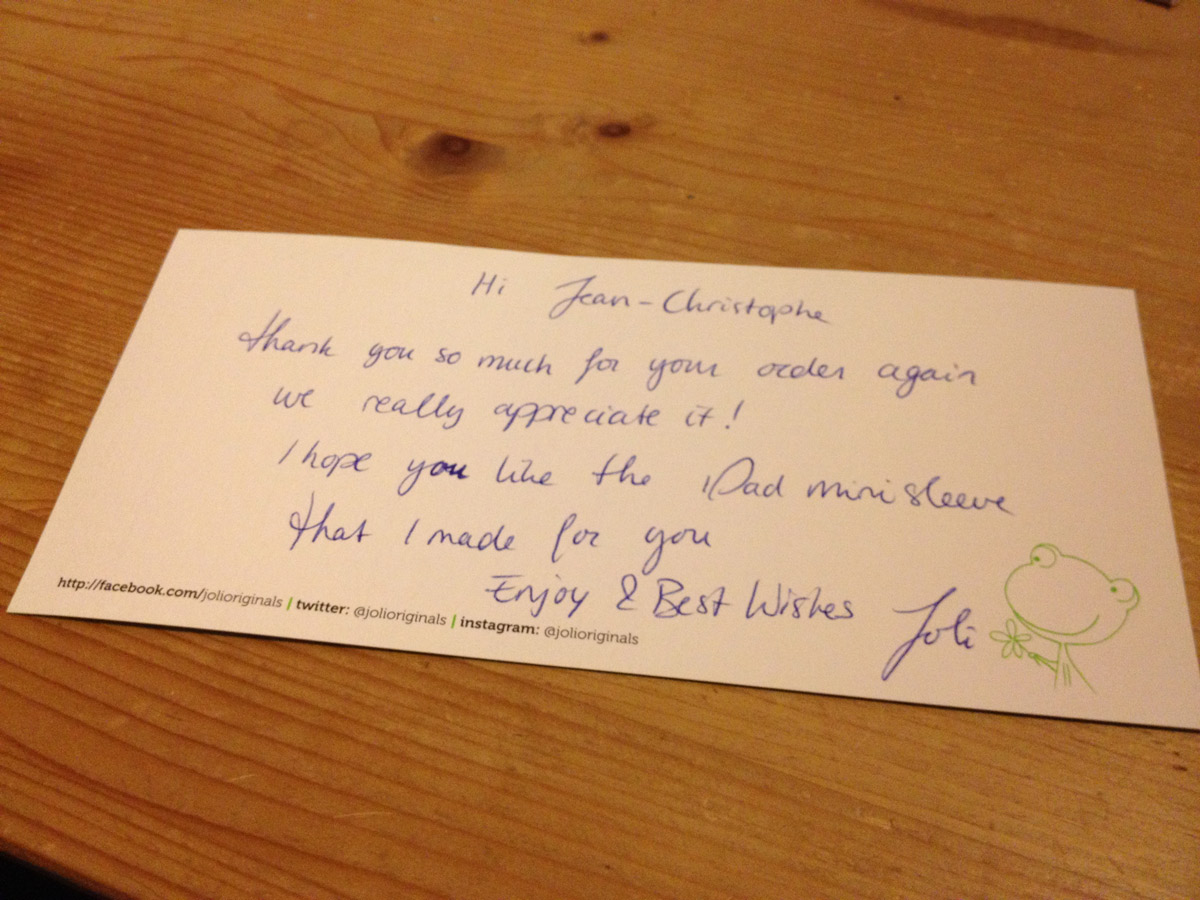 Hi Jean-Christophe
thank you so much for your order again
we really appreciate it!
I hope you like the iPad mini sleeve
that I made for you
Enjoy & Best Wishes
Joli
http://facebook.com/jolioriginals | twitter: @jolioriginals | instagram: @jolioriginals